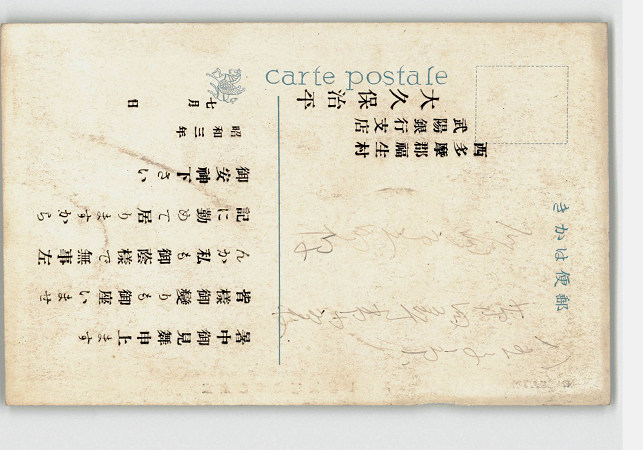 carte postale
きかは便郵
暑中御見舞申上ます
皆様御變りも御座いませ
んか私も御蔭様で無事左
記に勤めて居りますから
御安神下さい
昭和三年
七月 日
西多摩郡福生村
武陽銀行支店
大久保治平